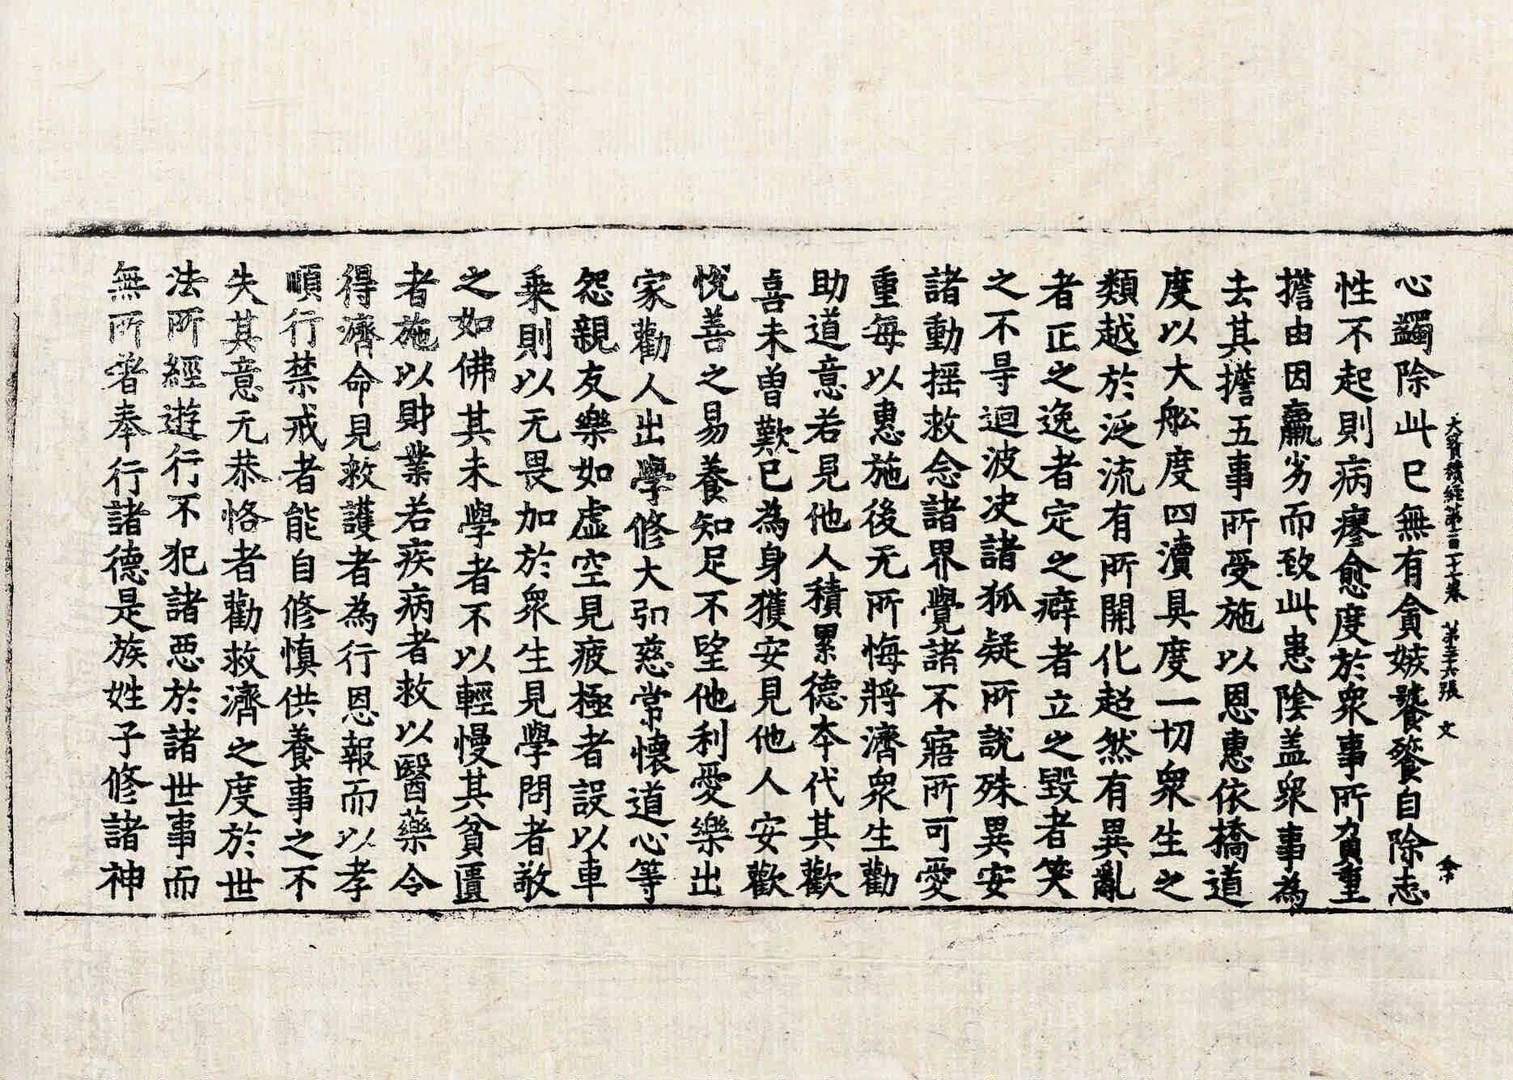 心蠲除此已無有貪嫉饕餮自除志
大寶積經第一百一十七卷　第三十六張　文
性不起則病瘳愈度於衆事所負重
擔由因羸劣而致此患陰盖衆事為
去其擔五事所受施以恩惠依橋道
度以大舩度四瀆具度一切衆生之
類越於泛流有所開化超然有異亂
者正之逸者定之癖者立之毀者笑
之不㝵迴波决諸狐疑所說殊異安
諸動摇救念諸界覺諸不寤所可愛
重每以惠施後无所悔將濟衆生勸
助道意若見他人積累德夲代其歡
喜未曾歎已為身獲安見他人安歡
悅善之易養知足不望他利愛樂出
家勸人出學修大弘慈常懷道心等
怨親友樂如虛空見疲極者設以車
乘則以无畏加於衆生見學問者敬
之如佛其未學者不以輕慢其貧匱
者施以財業若疾病者救以醫藥令
得濟命見救護者為行恩報而以孝
順行禁戒者能自修慎供養事之不
失其意无恭恪者勸救濟之度於世
法所經遊行不犯諸惡於諸世事而
無所著奉行諸德是族姓子修諸神